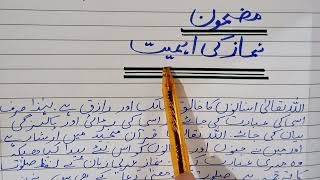 مضمون
نماز کی اہمیت
اللہ تعالیٰ انسانوں کا خالق مالک اور رازق ہے لہٰذا صرف
اسی کی عبادت کی جائے اسی کی بڑائی اور پاکیزگی
بیان کی جائے اللہ تعالیٰ قرآن مجید میں ارشاد ہے
میں نے جنوں اور انسانوں کو اس لئے پیدا کیا ہے کہ
وہ میری عبادت کریں نماز عربی زبان کے لفظ صلوٰۃ